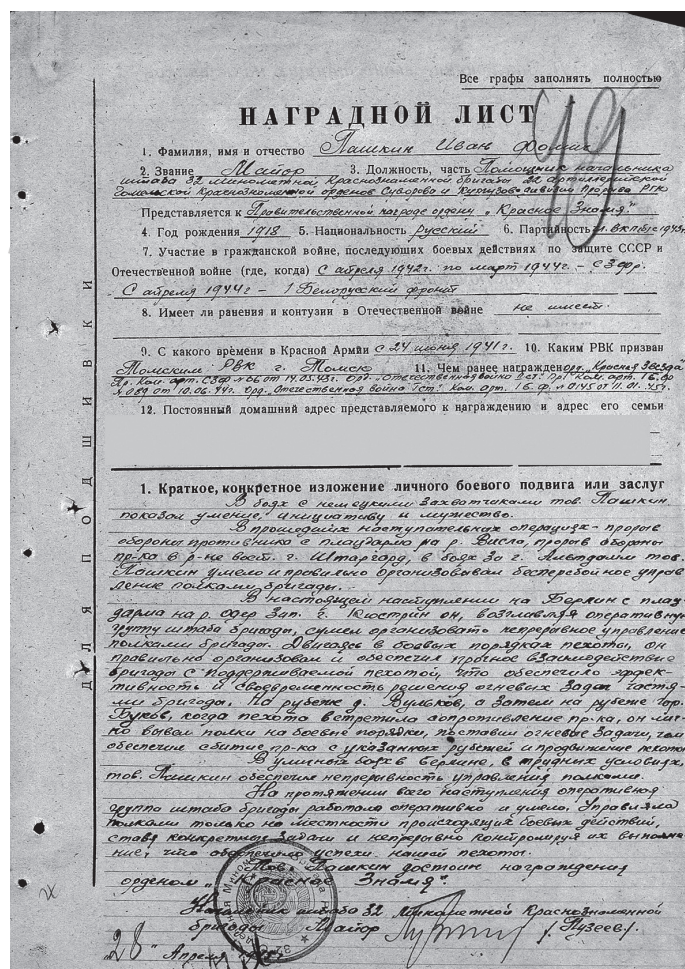 Все графы заполнять полностью
НАГРАДНОЙ ЛИСТ
49
1. Фамилия, имя и отчество Пашкин Иван Фомич
2. Звание Майор 3. Должность, часть Помощник начальника
штаба 32 минометной Краснознаменной бригады 22 артиллерийской
Гомельской Краснознаменной орденов Суворова и Кутузова дивизии Прорыва РГК
Представляется к Правительственной награде ордену „Красное Знамя"
4. Год рождения 1918 5. Национальность русский 6. Партийность чл. ВКП(б) с 1943г
7. Участие в гражданской войне, последующих боевых действиях по защите СССР и
Отечественной войне (где, когда) С апреля 1942г. по март 1944г. – СЗ фр.
С апреля 1944г – 1 Белорусский фронт
8. Имеет ли ранения и контузии в Отечественной войне не имеет.
9. С какого времени в Красной Армии с 24 июня 1941г. 10. Каким РВК призван
Томским РВК г. Томск 11. Чем ранее награжден орд. „Красная Звезда"
Пр. Ком. арт. СЗФ №06 от 14.05.43г. Орд. „Отечественная война 2ст." Пр. Ком. арт. 1б.ф.
№089 от 10.06.44г. Орд. „Отечественная война 1ст." Ком. арт. 1б.ф. №0145 от 11.01.45г.
12. Постоянный домашний адрес представляемого к награждению и адрес его семьи
ДЛЯ ПОДШИВКИ
1. Краткое, конкретное изложение личного боевого подвига или заслуг
В боях с немецкими захватчиками тов. Пашкин
показал умение, инициативу и мужество.
В прошедших наступательных операциях – прорыв
обороны противника с плацдарма на р. Висла, прорыв обороны
пр-ка в р-не вост. г. Штаргард, в боях за г. Альтдамм тов.
Пашкин умело и правильно организовывал бесперебойное управ
ление полками бригады.
В настоящем наступлении на Берлин с плац
дарма на р. Одер зап. г. Кюстрин он, возглавляя оперативную
группу штаба бригады, сумел организовать непрерывное управление
полками бригады. Двигаясь в боевых порядках пехоты, он
правильно организовал и обеспечил прочное взаимодействие
бригады с поддерживаемой пехотой, что обеспечило эффек-
тивность и своевременность решения огневых задач частя-
ми бригады. На рубеже д. Вульков, а затем на рубеже гор.
Буков, когда пехота встретила сопротивление пр-ка, он лич-
но вывел полки на боевые порядки, поставил огневые задачи, чем
обеспечил сбитие пр-ка с указанных рубежей и продвижение пехоты
В уличных боях в Берлине, в трудных условиях,
тов. Пашкин обеспечил непрерывность управления полками.
На протяжении всего наступления оперативная
группа штаба бригады работала оперативно и умело. Управляла
полками только на местности происходящих боевых действий,
ставя конкретные задачи и непрерывно контролируя их выполне
ние, что обеспечило успехи нашей пехоты.
Тов. Пашкин достоин награждения
орденом „Красное Знамя".
Начальник штаба 32 минометной Краснознаменной
бригады Майор /Пузеев/.
„28" Апреля